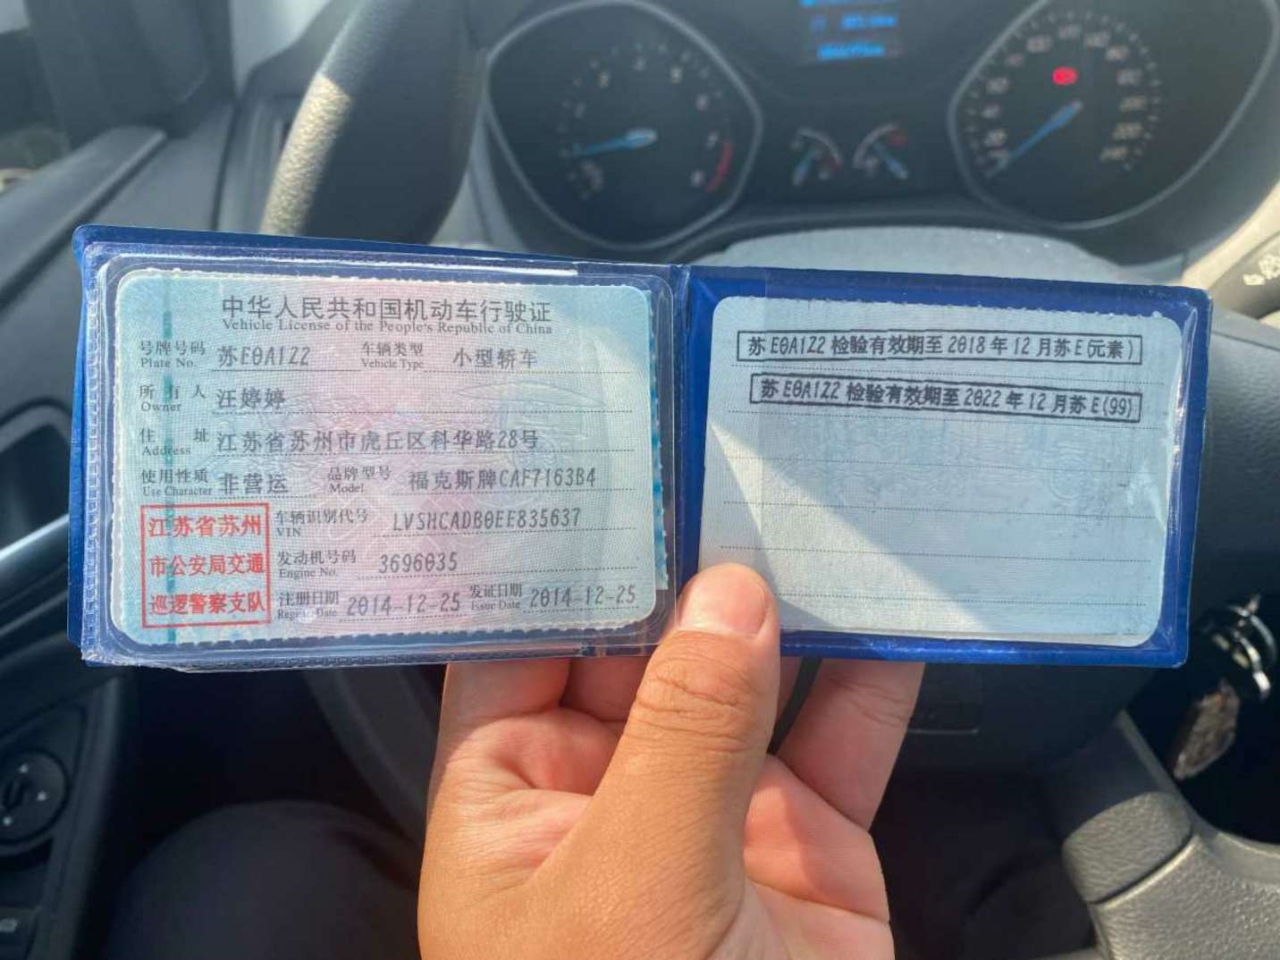 中华人民共和国机动车行驶证
Vehicle License of the People's Republic of China
号牌号码 苏E0A1Z2 车辆类型 小型轿车
Plate No. Vehicle Type
所有人 汪婷婷
Owner
住址 江苏省苏州市虎丘区科华路28号
Address
使用性质 非营运 品牌型号 福克斯牌CAF7163B4
Use Character Model
江苏省苏州
市公安局交通
巡逻警察支队
车辆识别代号 LVSHCADB0EE835637
VIN
发动机号码 3696035
Engine No.
注册日期 2014-12-25 发证日期 2014-12-25
Register Date Issue Date
苏E0A1Z2检验有效期至2018年12月苏E(元素)
苏E0A1Z2检验有效期至2022年12月苏E(99)